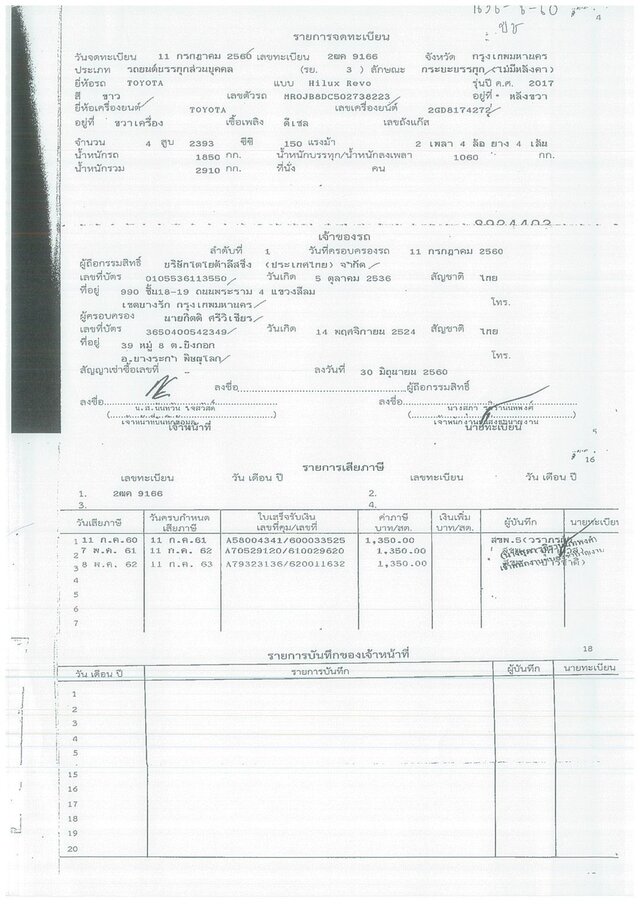 4
รายการจดทะเบียน
วันจดทะเบียน 11 กรกฎาคม 2560 เลขทะเบียน 2ฒค 9166 จังหวัด กรุงเทพมหานคร
ประเภท รถยนต์บรรทุกส่วนบุคคล (รย. 3 ) ลักษณะ กระบะบรรทุก(ไม่มีหลังคา)
ยี่ห้อรถ TOYOTA แบบ Hilux Revo รุ่นปี ค.ศ. 2017
สี ขาว เลขตัวรถ MR0JB8DC502738223 อยู่ที่ หลังขวา
ยี่ห้อเครื่องยนต์ TOYOTA เลขเครื่องยนต์ 2GD8174272
อยู่ที่ ขวาเครื่อง เชื้อเพลิง ดีเซล เลขถังแก๊ส
จำนวน 4 สูบ 2393 ซีซี 150 แรงม้า 2 เพลา 4 ล้อ ยาง 4 เส้น
น้ำหนักรถ 1850 กก. น้ำหนักบรรทุก/น้ำหนักลงเพลา 1060 กก.
น้ำหนักรวม 2910 กก. ที่นั่ง คน
8924403
เจ้าของรถ
ลำดับที่ 1 วันที่ครอบครองรถ 11 กรกฎาคม 2560
ผู้ถือกรรมสิทธิ์ บริษัทโตโยต้าลีสซิ่ง (ประเทศไทย) จำกัด
เลขที่บัตร 0105536113550 วันเกิด 5 ตุลาคม 2536 สัญชาติ ไทย
ที่อยู่ 990 ชั้น18-19 ถนนพระราม 4 แขวงสีลม
เขตบางรัก กรุงเทพมหานคร โทร.
ผู้ครอบครอง นายกิตติ ศรีวิเชียร
เลขที่บัตร 3650400542349 วันเกิด 14 พฤศจิกายน 2524 สัญชาติ ไทย
ที่อยู่ 39 หมู่ 8 ต.บึงกอก
อ.บางระกำ พิษณุโลก โทร.
สัญญาเช่าซื้อเลขที่ - ลงวันที่ 30 มิถุนายน 2560
ลงชื่อ ผู้ถือกรรมสิทธิ์
ลงชื่อ ลงชื่อ
เจ้าหน้าที่ นายทะเบียน
5
16
รายการเสียภาษี
เลขทะเบียน วัน เดือน ปี เลขทะเบียน วัน เดือน ปี
1. 2ฒค 9166 2.
3. 4.
วันเสียภาษี วันครบกำหนดเสียภาษี ใบเสร็จรับเงิน เลขที่คุม/เลขที่ ค่าภาษี บาท/สต. เงินเพิ่ม บาท/สต. ผู้บันทึก นายทะเบียน
1 11 ก.ค.60 11 ก.ค.61 A58004341/600033525 1,350.00
2 7 พ.ค. 61 11 ก.ค. 62 A70529120/610029620 1,350.00
3 8 พ.ค. 62 11 ก.ค. 63 A79323136/620011632 1,350.00
4
5
6
7
18
รายการบันทึกของเจ้าหน้าที่
วัน เดือน ปี รายการบันทึก ผู้บันทึก นายทะเบียน
1
2
3
4
5
15
16
17
18
19
20